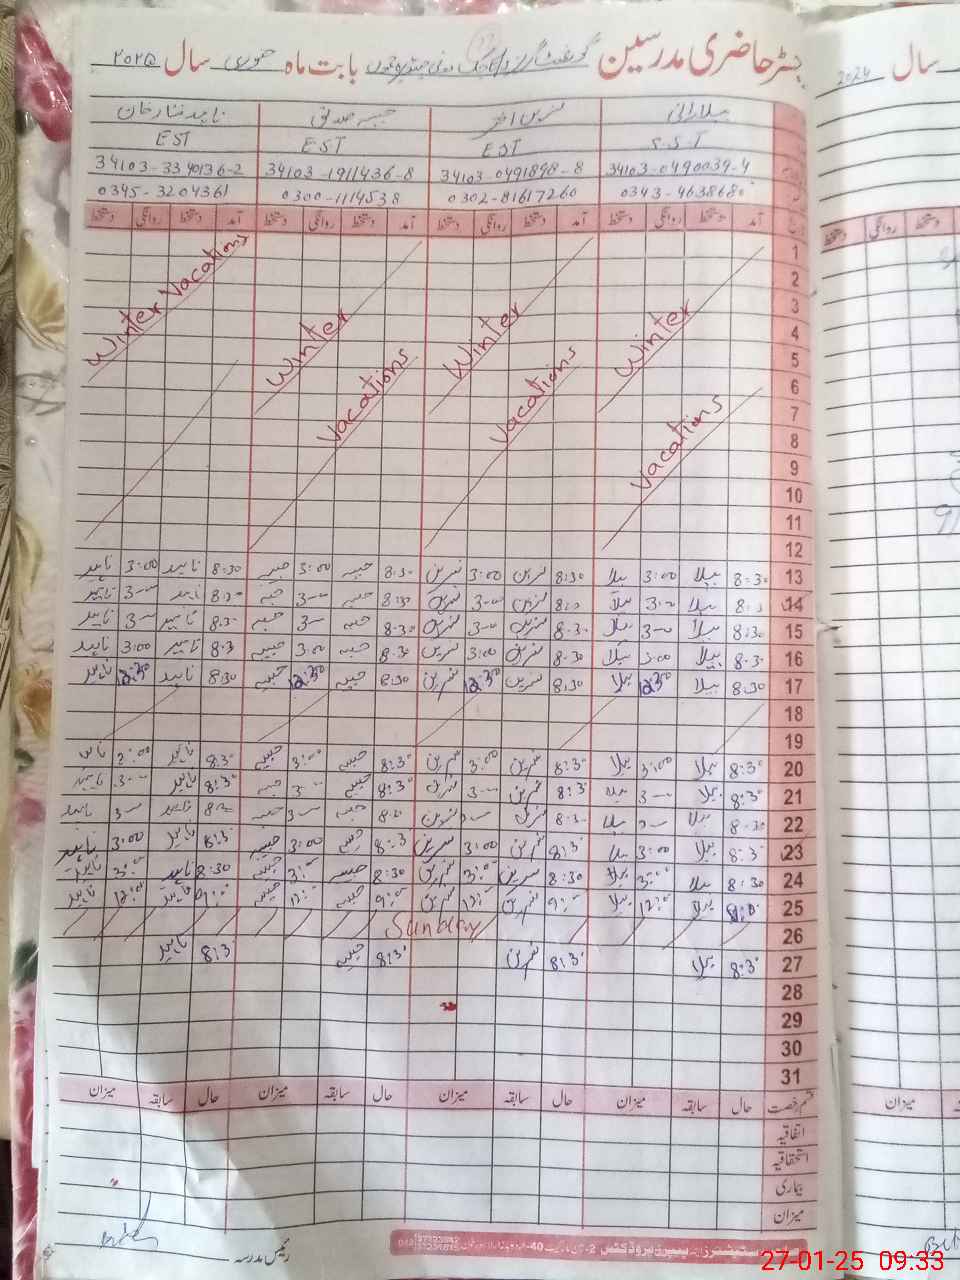 رجسٹر حاضری مدرسین گورنمنٹ گرلز بابت ماہ جنوری سال ۲۰۲۵
بیلا رانی نسرین اختر حبیبہ صدیق ناہید مختار خان
S.S.T EST EST EST
34103-0490039-4 34103-0491898-8 34103-1911436-8 34103-3340136-2
0302-81617260 0300-1114538 0345-3204361
آمد دستخط روانگی دستخط آمد دستخط روانگی دستخط آمد دستخط روانگی دستخط دستخط روانگی دستخط
1
2
3
4
5
6
7
8
9
10
11
12
Winter Vacations
Winter Vacations
Winter Vacations
Winter Vacations
13 8:30 بیلا 3:00 بیلا 8:30 نسرین 3:00 نسرین 8:30 حبیبہ 3:00 حبیبہ 8:30 ناہید 3:00 ناہید
14 بیلا بیلا نسرین نسرین 8:30 حبیبہ حبیبہ ناہید ناہید
15 8:30 بیلا بیلا 8:30 نسرین نسرین 8:30 حبیبہ حبیبہ 8:30 ناہید ناہید
16 8:30 بیلا 3:00 بیلا 8:30 نسرین 3:00 نسرین 8:30 حبیبہ 3:00 حبیبہ 8:3 ناہید 3:00 ناہید
17 8:30 بیلا 12:30 بیلا 8:30 نسرین 12:30 نسرین 8:30 حبیبہ 12:30 حبیبہ 8:30 ناہید 12:30 ناہید
18
19
20 8:30 بیلا 3:00 بیلا 8:30 نسرین 3:00 نسرین 8:30 حبیبہ 3:00 حبیبہ 8:30 ناہید 3:00 ناہید
21 8:30 بیلا بیلا 8:30 نسرین نسرین 8:30 حبیبہ حبیبہ 8:30 ناہید ناہید
22 8:30 بیلا بیلا 8:30 نسرین نسرین حبیبہ حبیبہ ناہید ناہید
23 8:30 بیلا 3:00 بیلا 8:30 نسرین 3:00 نسرین 8:30 حبیبہ 3:00 حبیبہ 8:30 ناہید 3:00 ناہید
24 8:30 بیلا 3:00 بیلا 8:30 نسرین 3:00 نسرین 8:30 حبیبہ 3:00 حبیبہ 8:30 ناہید 3:00 ناہید
25 بیلا 12:00 بیلا 9:00 نسرین 12:00 نسرین 9:00 حبیبہ 12:00 حبیبہ 9:00 ناہید 12:00 ناہید
26 Sunday
27 8:30 بیلا 8:30 نسرین 8:30 حبیبہ 8:30 ناہید
28
29
30
31
قسم رخصت حال سابقہ میزان حال سابقہ میزان حال سابقہ میزان حال سابقہ میزان
اتفاقیہ
استحقاقیہ
بیماری
میزان
رئیس مدرسہ
سال 2024
دستخط روانگی دستخط
میزان
27-01-25 09:33